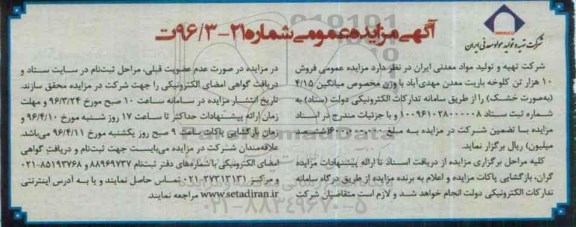 آگهی مزایده عمومی شماره ۲۱-۹۶/۳ت
شرکت تهیه و تولید مواد معدنی ایران
شرکت تهیه و تولید مواد معدنی ایران در نظر دارد مزایده عمومی فروش
۱۰ هزار تن کلوخه باریت معدن مهدی‌آباد با وزن مخصوص میانگین ۴/۱۵
(به‌صورت خشک) را از طریق سامانه تدارکات الکترونیکی دولت (ستاد) به
شماره ثبت ستاد و با جزییات مندرج در اسناد
مزایده با تضمین شرکت در مزایده به مبلغ
میلیون) ریال برگزار نماید.
کلیه مراحل برگزاری مزایده از دریافت اسناد تا ارائه پیشنهادات مزایده
گران، بازگشایی پاکات مزایده و اعلام به برنده مزایده از طریق درگاه سامانه
تدارکات الکترونیکی دولت انجام خواهد شد و لازم است متقاضیان شرکت
در مزایده در صورت عدم عضویت قبلی، مراحل ثبت‌نام در سایت ستاد و
دریافت گواهی امضای الکترونیکی را جهت شرکت در مزایده محقق سازند.
تاریخ انتشار مزایده در سامانه ساعت ۱۰ صبح مورخ ۹۶/۳/۲۴ و مهلت
زمان ارائه پیشنهادات حداکثر تا ساعت ۱۷ روز شنبه مورخ ۹۶/۴/۱۰ و
زمان بازگشایی پاکات ساعت ۹ صبح روز یکشنبه مورخ ۹۶/۴/۱۱ می‌باشد.
علاقه‌مندان شرکت در مزایده می‌بایست جهت ثبت‌نام و دریافت گواهی
امضای الکترونیکی با شماره‌های دفتر ثبت‌نام ۸۸۹۶۹۷۳۷ و ۸۵۱۹۳۷۶۸-۰۲۱
و مرکز تماس حاصل نمایند و یا به آدرس اینترنتی
www.setadiran.ir مراجعه نمایند.
۰۲۱-۸۸۳۴۹۶۷۰-۵